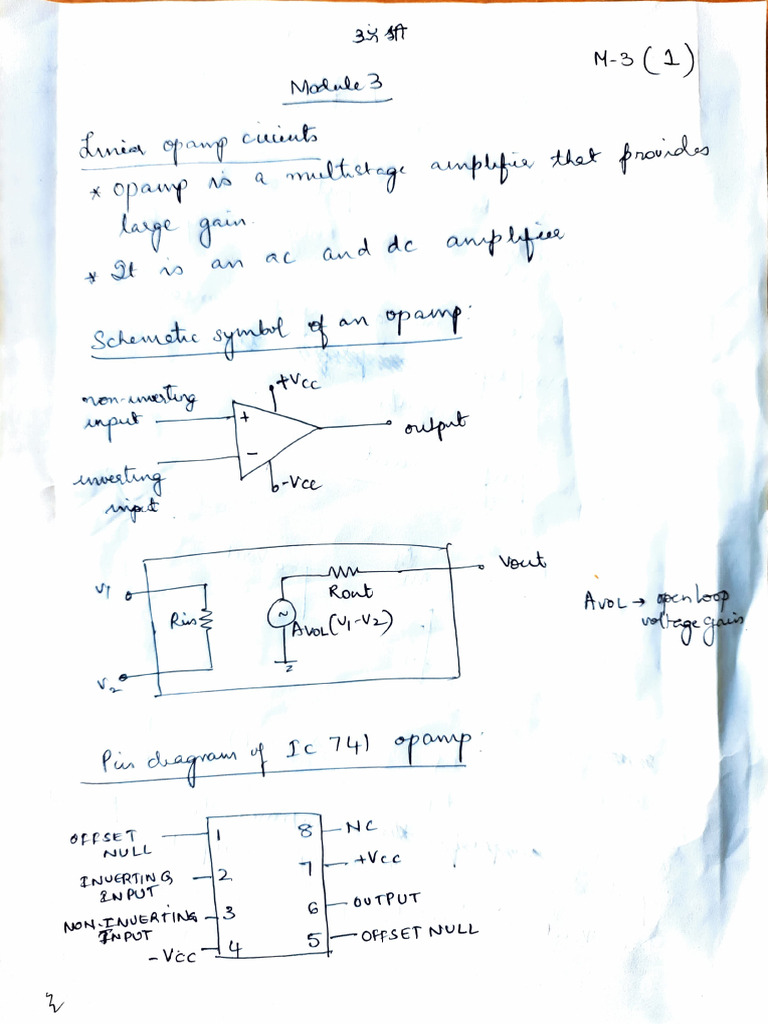 M-3 (1)
Module 3
Linear opamp circuits
* opamp is a multistage amplifier that provides
large gain.
* It is an ac and dc amplifier
Schematic symbol of an opamp:
+Vcc
non-inverting
input
+
output
-
inverting
input
-Vcc
Vout
V1
Rout
Rin
~
AVOL(V1-V2)
AVOL → open loop
voltage gain
V2
Pin diagram of IC 741 opamp:
OFFSET
NULL
1
8
NC
INVERTING
INPUT
2
7
+Vcc
NON-INVERTING
INPUT
3
6
OUTPUT
-Vcc
4
5
OFFSET NULL